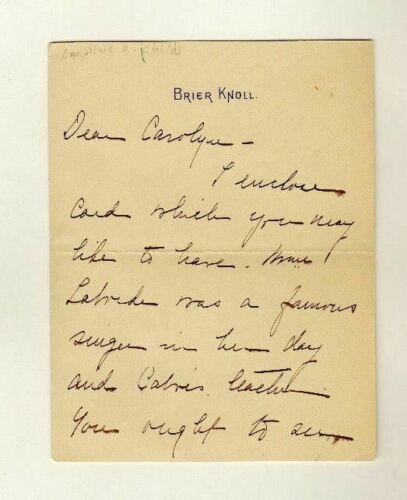 Caroline A. Childs
BRIER KNOLL.
Dear Carolyn -
I enclose
card which you may
like to have. Mme
was a famous
singer in her day
and teacher.
You ought to see